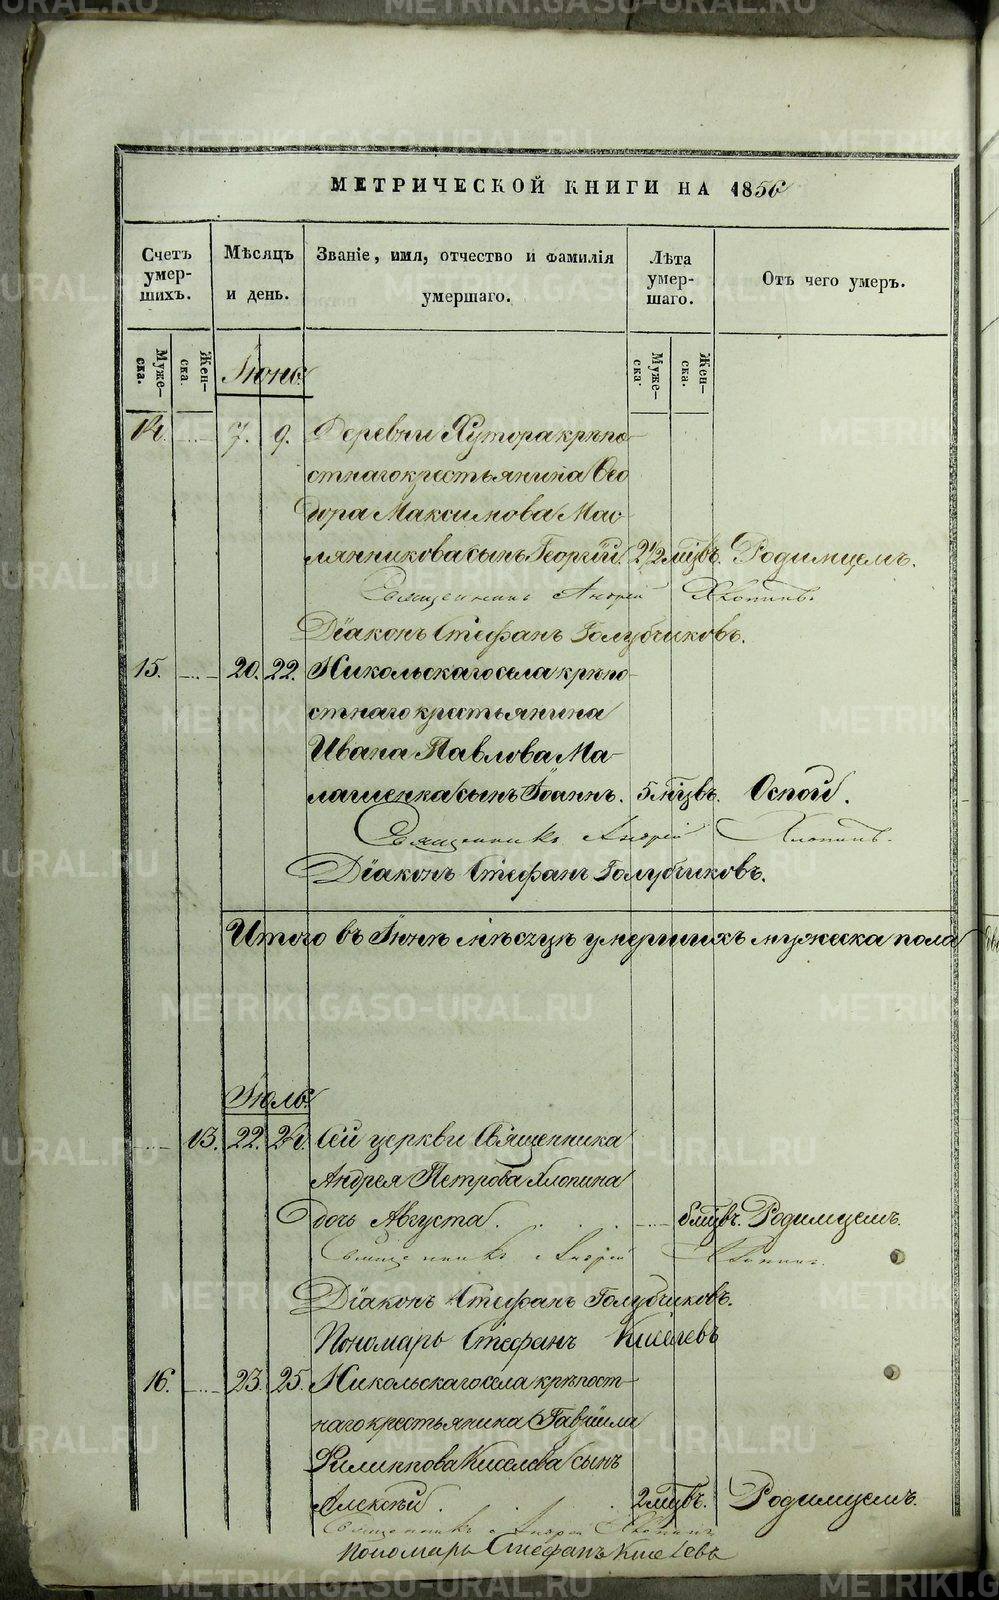 МЕТРИЧЕСКОЙ КНИГИ НА 1856
Счетъ умер-шихъ.
Мѣсяцъ и день.
Званіе, имя, отчество и фамилія умершаго.
Лѣта умер-шаго.
Отъ чего умеръ.
Муже-ска.
Жен-ска.
Муже-ска.
Жен-ска.
Іюнь
14. 7. 9. Деревни Хутора крѣпо-
стнаго крестьянина Ѳео
дора Максимова Мас-
лянникова сынъ Георгій. 2 1/2 мцвъ. Родимцемъ.
Священникъ Андрей Хлопинъ.
Діаконъ Стефанъ Голубчиковъ.
15. 20. 22. Никольскаго села крѣпо-
стнаго крестьянина
Ивана Павлова Ма-
лашенка сынъ Іоаннъ. 5 мцвъ. Оспой.
Священникъ Андрей Хлопинъ.
Діаконъ Стефанъ Голубчиковъ.
Итого въ Іюнѣ мѣсяцѣ умершихъ мужеска пола
Іюль
13. 22. 24. Сей церкви Священника
Андрея Петрова Хлопина
дочь Августа. 6 мцвъ. Родимцемъ.
Священникъ Андрей Хлопинъ.
Діаконъ Стефанъ Голубчиковъ.
Пономарь Стефанъ Киселевъ
16. 23. 25. Никольскаго села крѣпост-
наго крестьянина Гавріила
Филиппова Киселева сынъ
Алексѣй. 2 мцвъ. Родимцемъ.
Священникъ Андрей Хлопинъ
Пономарь Стефанъ Киселевъ
METRIKI.GASO-URAL.RU